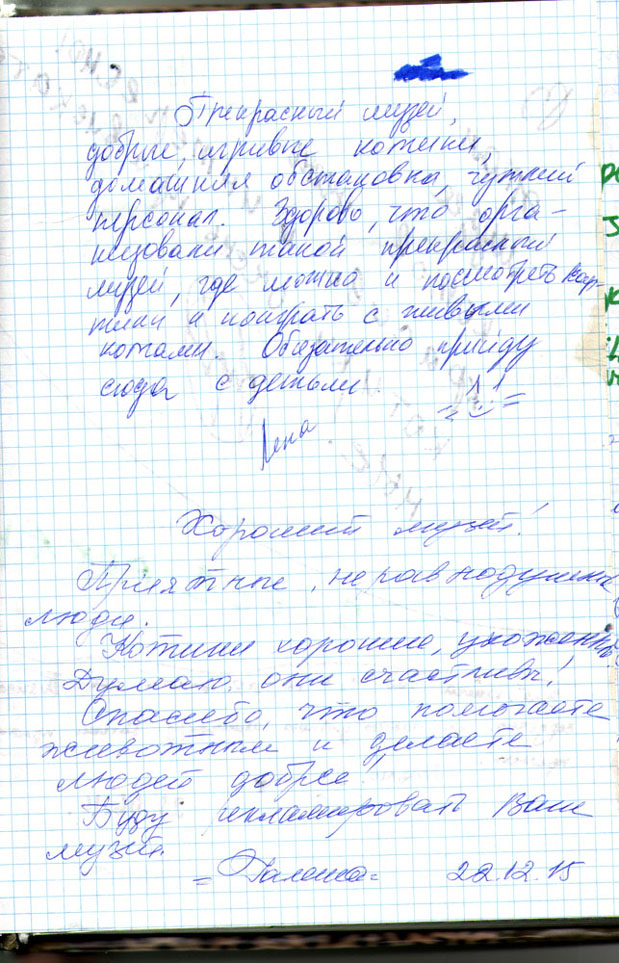 Прекрасный музей,
добрые, игривые котики,
домашняя обстановка, чуткий
персонал. Здорово, что орга-
низовали такой прекрасный
музей, где можно и посмотреть кар-
тины и поиграть с живыми
котами. Обязательно прийду
сюда с детьми.
Лена
Хороший музей!
Приятные, неравнодушные
люди.
Котики хорошие, ухоженные
Думаю, они счастливы!
Спасибо, что помогаете
животным и делаете
людей добрее!
Буду рекламировать Ваш
музей.
= = 22.12.15